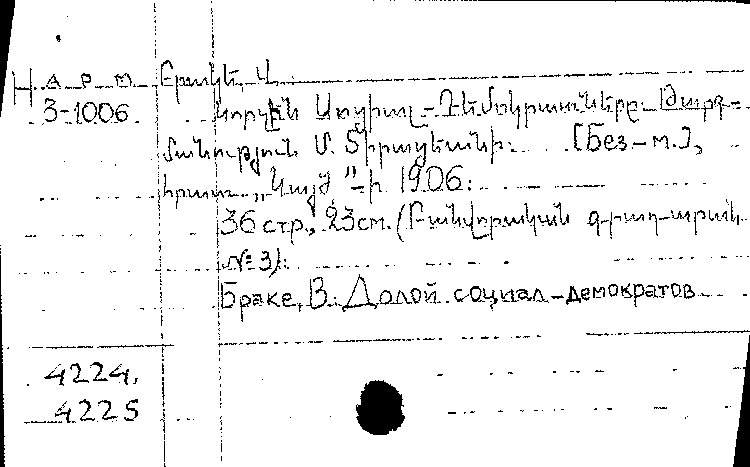 Н А Р М Բրակէ, Վ.
3-1006 Կորչեն Սոցիալ-Դեմոկրատները. Թարգ-
մանություն Մ. Տիրացեանի. [Без-м.],
հրատ. „Կայծ"-ի 1906:
36 стр., 23см. (Բանվորական գրադարան
№ 3):
Браке, В. Долой социал-демократов
4224,
4225